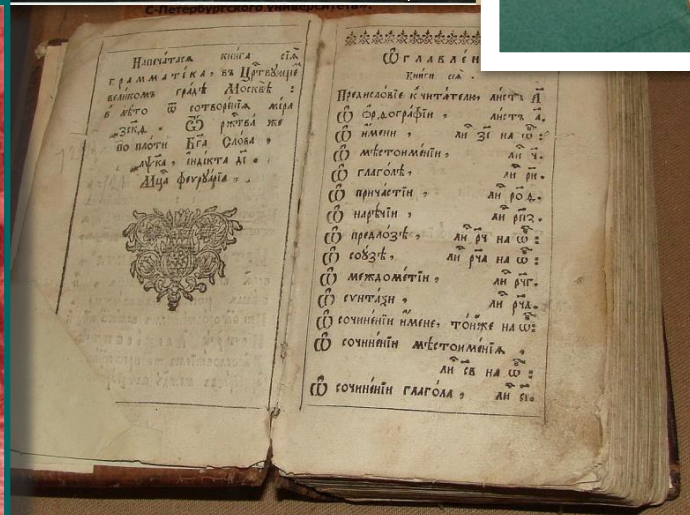 С-Петербургского университета
Напечатася книга сїѧ
грамматїка, въ Црⷭ҇твующеⷨ
великомъ градѣ Москвѣ :
в лѣто ѿ сотворенїѧ мїра
Ѿ ржⷭ҇тва же
по плоти Бг҃а Слова ,
індїкта
Мцⷭ҇а феѵруарїа
Ѡглавлен
Книги сеѧ .
Предисловїе к читателю, листъ А҃.
Ѡ Орѳографїи , листъ а҃.
Ѡ имени , ли зı҃ на ѡ҃:
Ѡ мѣстоименїи , ли ч҃.
Ѡ глаголѣ , ли ри҃.
Ѡ причастїи , ли род҃.
Ѡ нарѣчїи , ли рпз҃.
Ѡ предлозѣ , ли рч҃ на ѡ҃:
Ѡ соузѣ , ли рча҃ на ѡ҃:
Ѡ междометїи , ли рчг҃.
Ѡ сѵнтаѯи , ли рчд҃.
Ѡ сочиненїи имене, тойже на ѡ҃:
Ѡ сочиненїи мѣстоименїѧ ,
ли св҃ на ѡ҃:
Ѡ сочиненїи глагола , ли